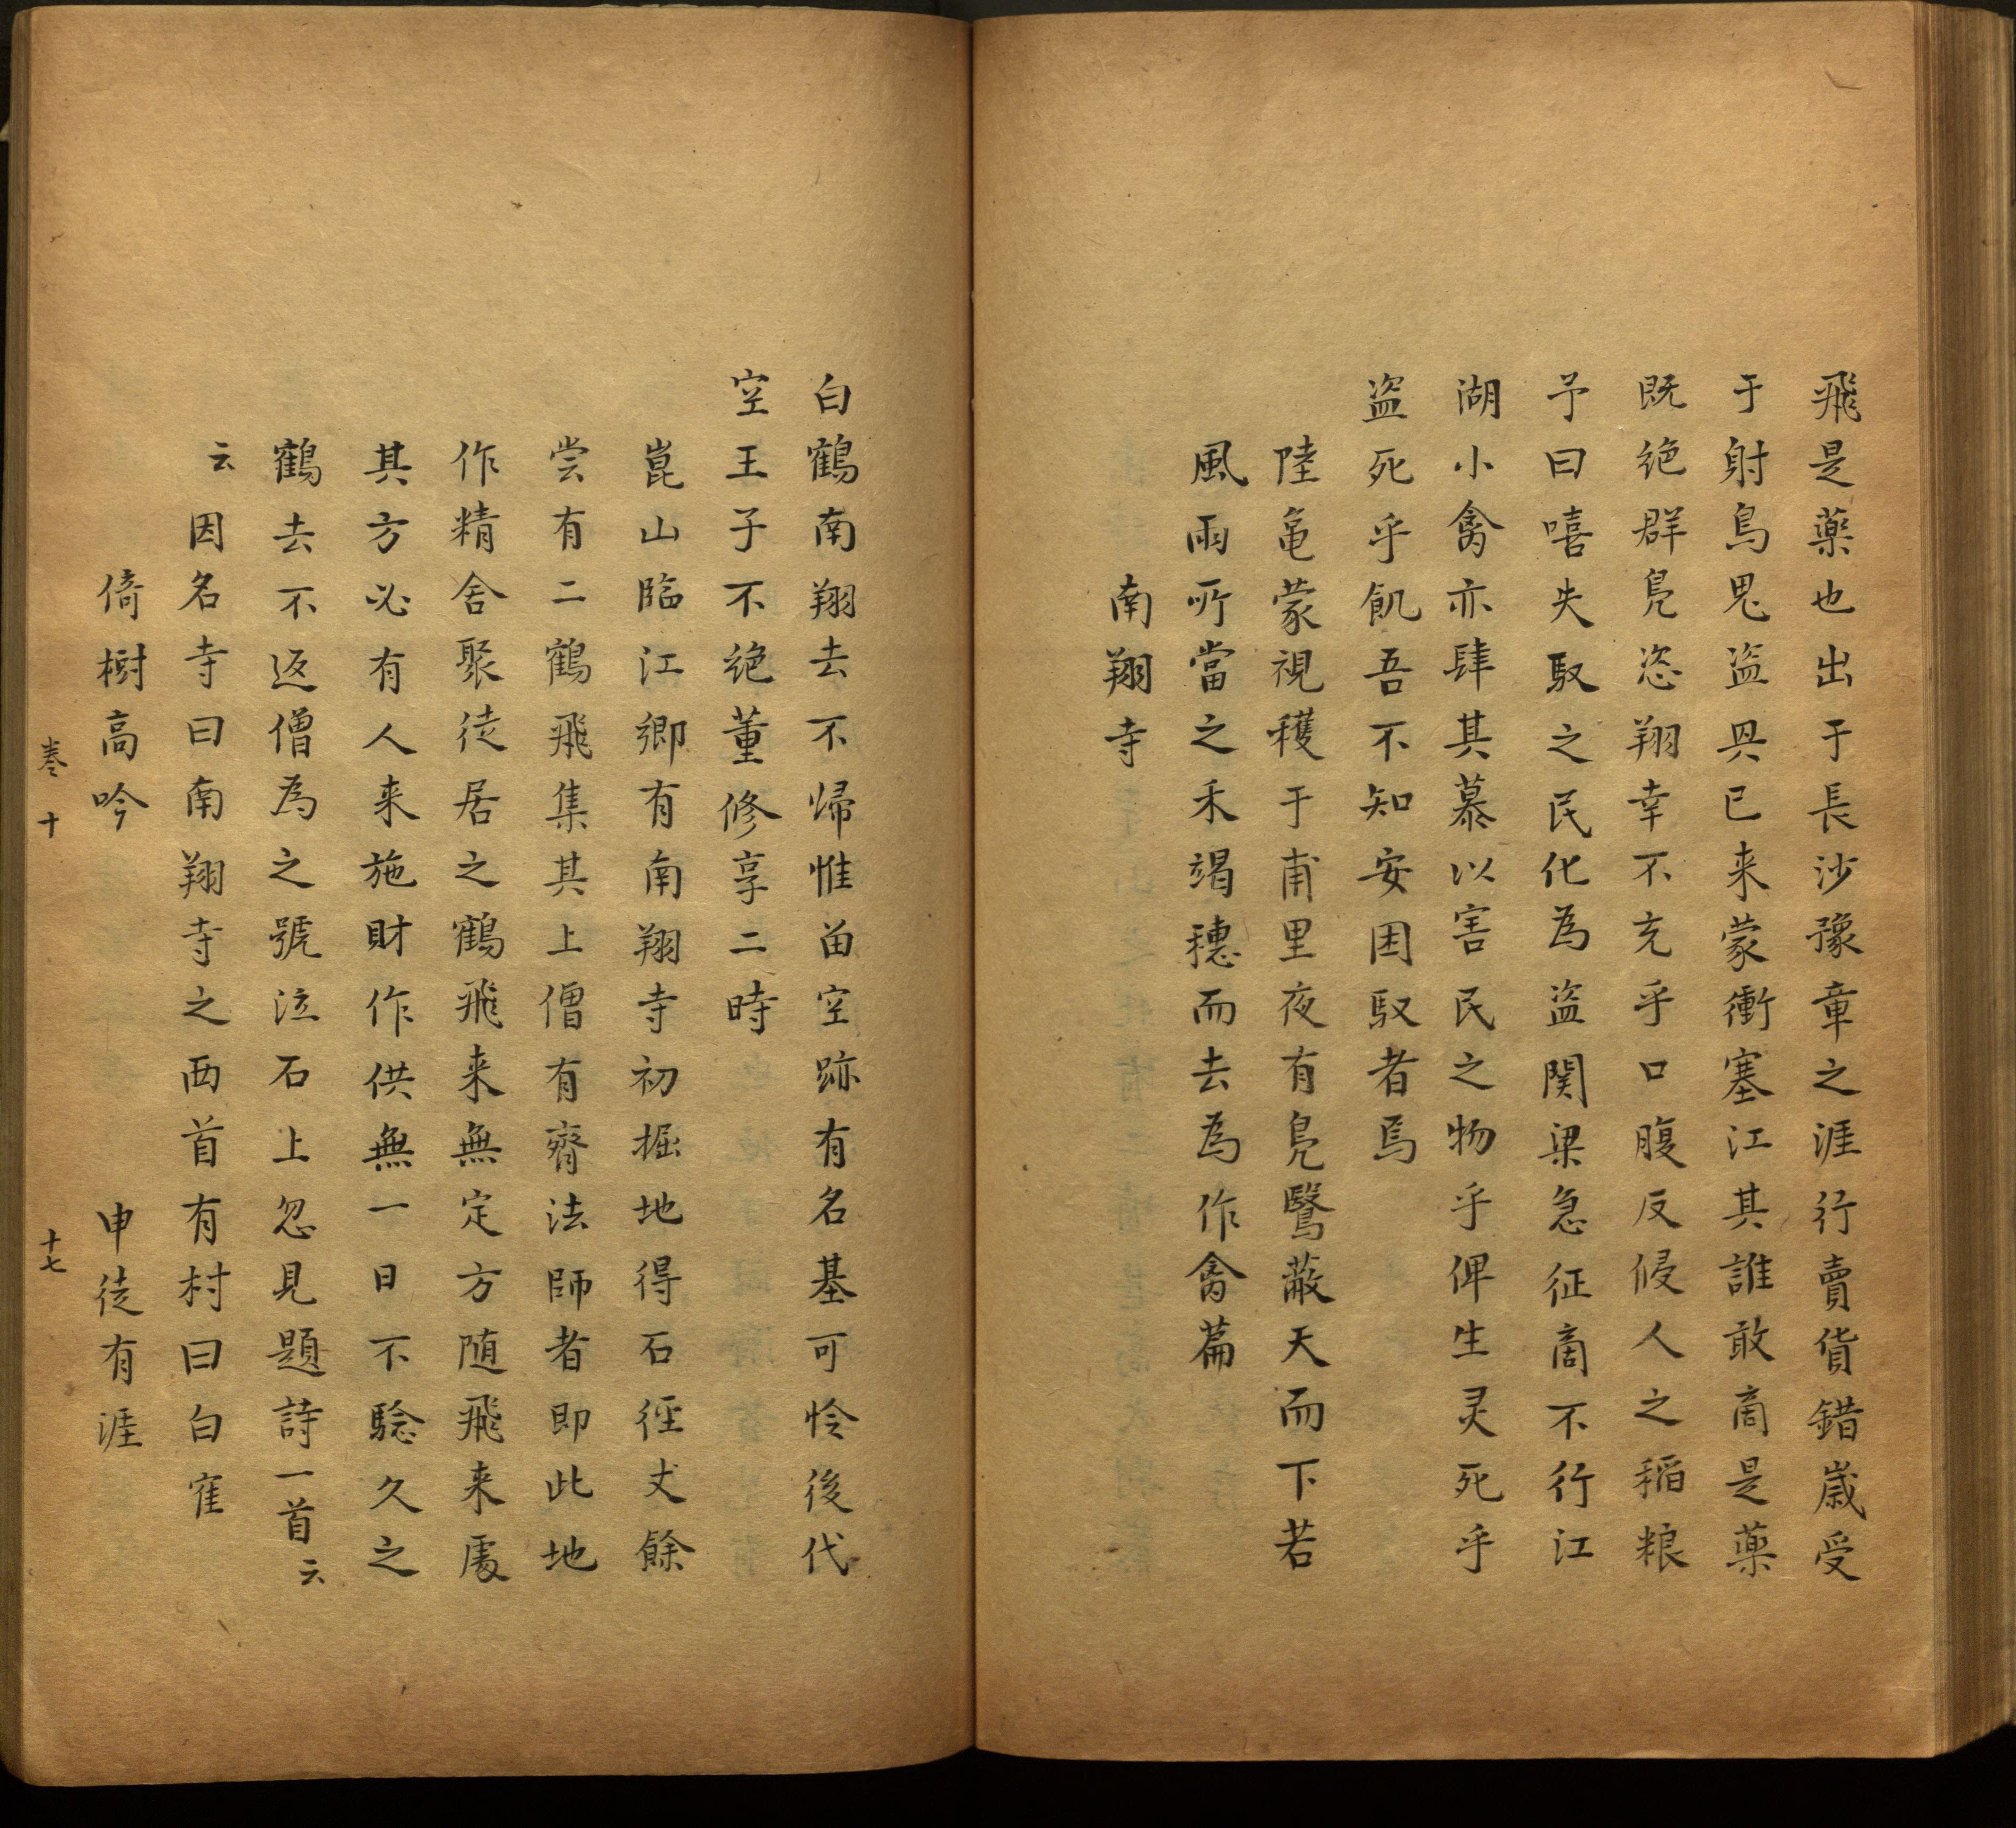 飛是藥也出于長沙豫章之涯行賣貨錯嵗受
于射鳥兕盜興已来蒙衝塞江其誰敢啇是藥
既絶群鳬恣翔幸不充乎口腹反侵人之稲粮
予曰嘻失馭之民化為盜関梁急征啇不行江
湖小禽亦肆其暴以害民之物乎俾生灵死乎
盜死乎飢吾不知安困馭者焉
陸亀蒙視穫于甫里夜有鳬鷖蔽天而下若
風雨所當之禾竭穗而去為作禽篇
南翔寺
白鶴南翔去不帰惟畄空跡有名基可怜後代
空王子不絶薫修享二時
崑山臨江鄉有南翔寺初掘地得石徑丈餘
尝有二鶴飛集其上僧有齊法師者即此地
作精舎聚徒居之鶴飛来無定方随飛来處
其方必有人来施財作供無一日不騐久之
鶴去不返僧為之號泣石上忽見題詩一首云
云因名寺曰南翔寺之西首有村曰白寉
倚樹高吟　申徒有涯
卷十　十七